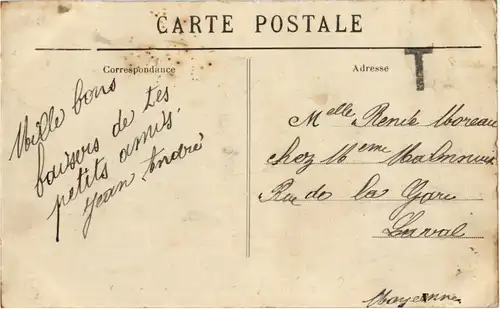 CARTE POSTALE
Correspondance
Mille bons
baisers de tes
petits amis,
Jean André
Adresse
T
Melle Renée Moreau
chez Mme
Rue de la Gare
Laval
Mayenne